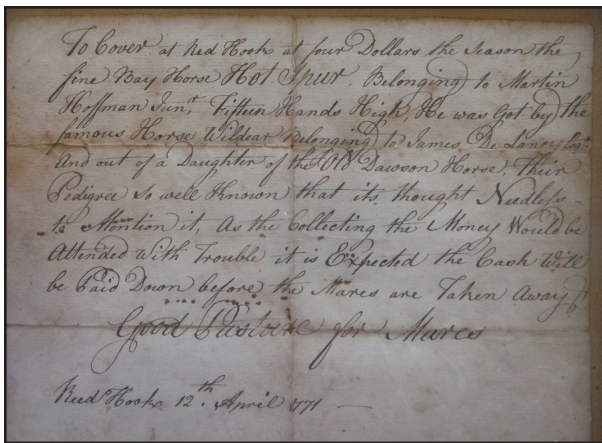 To Cover at Red Hook at four Dollars the Season the
fine Bay Horse Hot Spur Belonging to Martin
Hoffman Junr, Fifteen Hands High, He was Got by the
famous Horse Wildear Belonging to James De Lancy Esqr.
And out of a Daughter of the Old Dawson Horse, Their
Pedigree So well Known that its, thought Needless
to Mention it, As the Collecting the Money Would be
Attended With Trouble it is Expected the Cash Will
be Paid Down before the Mares are Taken Away
Good Pasture for Mares
Reed Hook 12th. April 1771